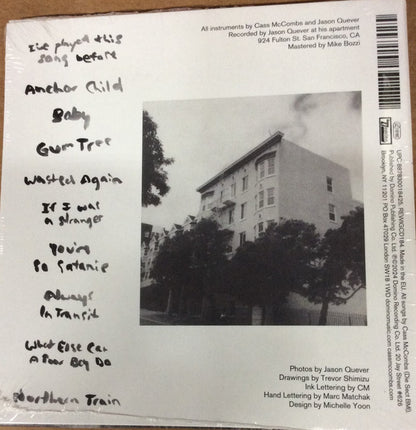 I've played this
song before
Anchor Child
Baby
Gum Tree
Wasted Again
If I was
a stranger
You're
So Satanic
Always
In Transit
What Else Can
A Poor Boy Do
Northern Train
All instruments by Cass McCombs and Jason Quever
Recorded by Jason Quever at his apartment
924 Fulton St. San Francisco, CA
Mastered by Mike Bozzi
Photos by Jason Quever
Drawings by Trevor Shimizu
Ink Lettering by CM
Hand Lettering by Marc Matchak
Design by Michelle Yoon
UPC 887830018425. REWIGCD164. Made in the EU. All songs by Cass McCombs (Die Sect BMI)
Published by Domino Publishing Co. Ltd. ℗©2024 Domino Recording Co. Ltd. 20 Jay Street #626
Brooklyn, NY 11201 PO Box 47029 London SW18 1WD dominomusic.com
cassmccombs.com